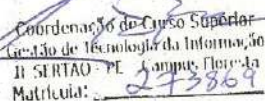 Coordenação de Curso Superior
Gestão de Tecnologia da Informação
IF SERTÃO - PE Campus Floresta
Matrícula: 273869